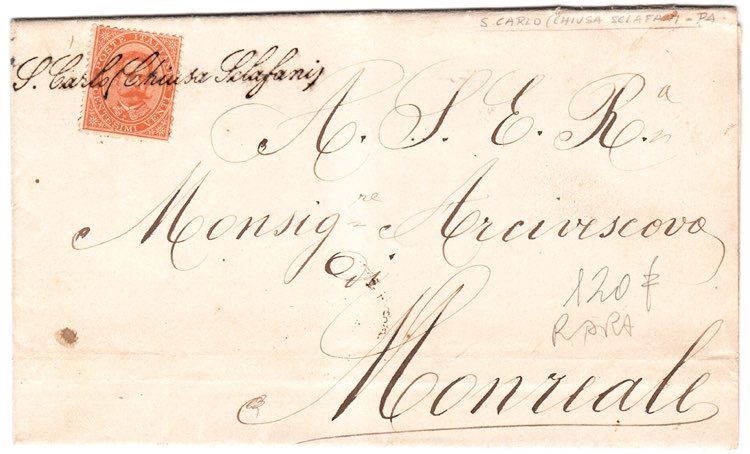 S. CARLO (CHIUSA SCLAFANI) - PA
POSTE ITAL
S. Carlo (Chiusa Sclafani)
CENTESIMI VENTI
A. S. E. R.a
Monsig.re Arcivescovo
di
Monreale
120 £
RARA